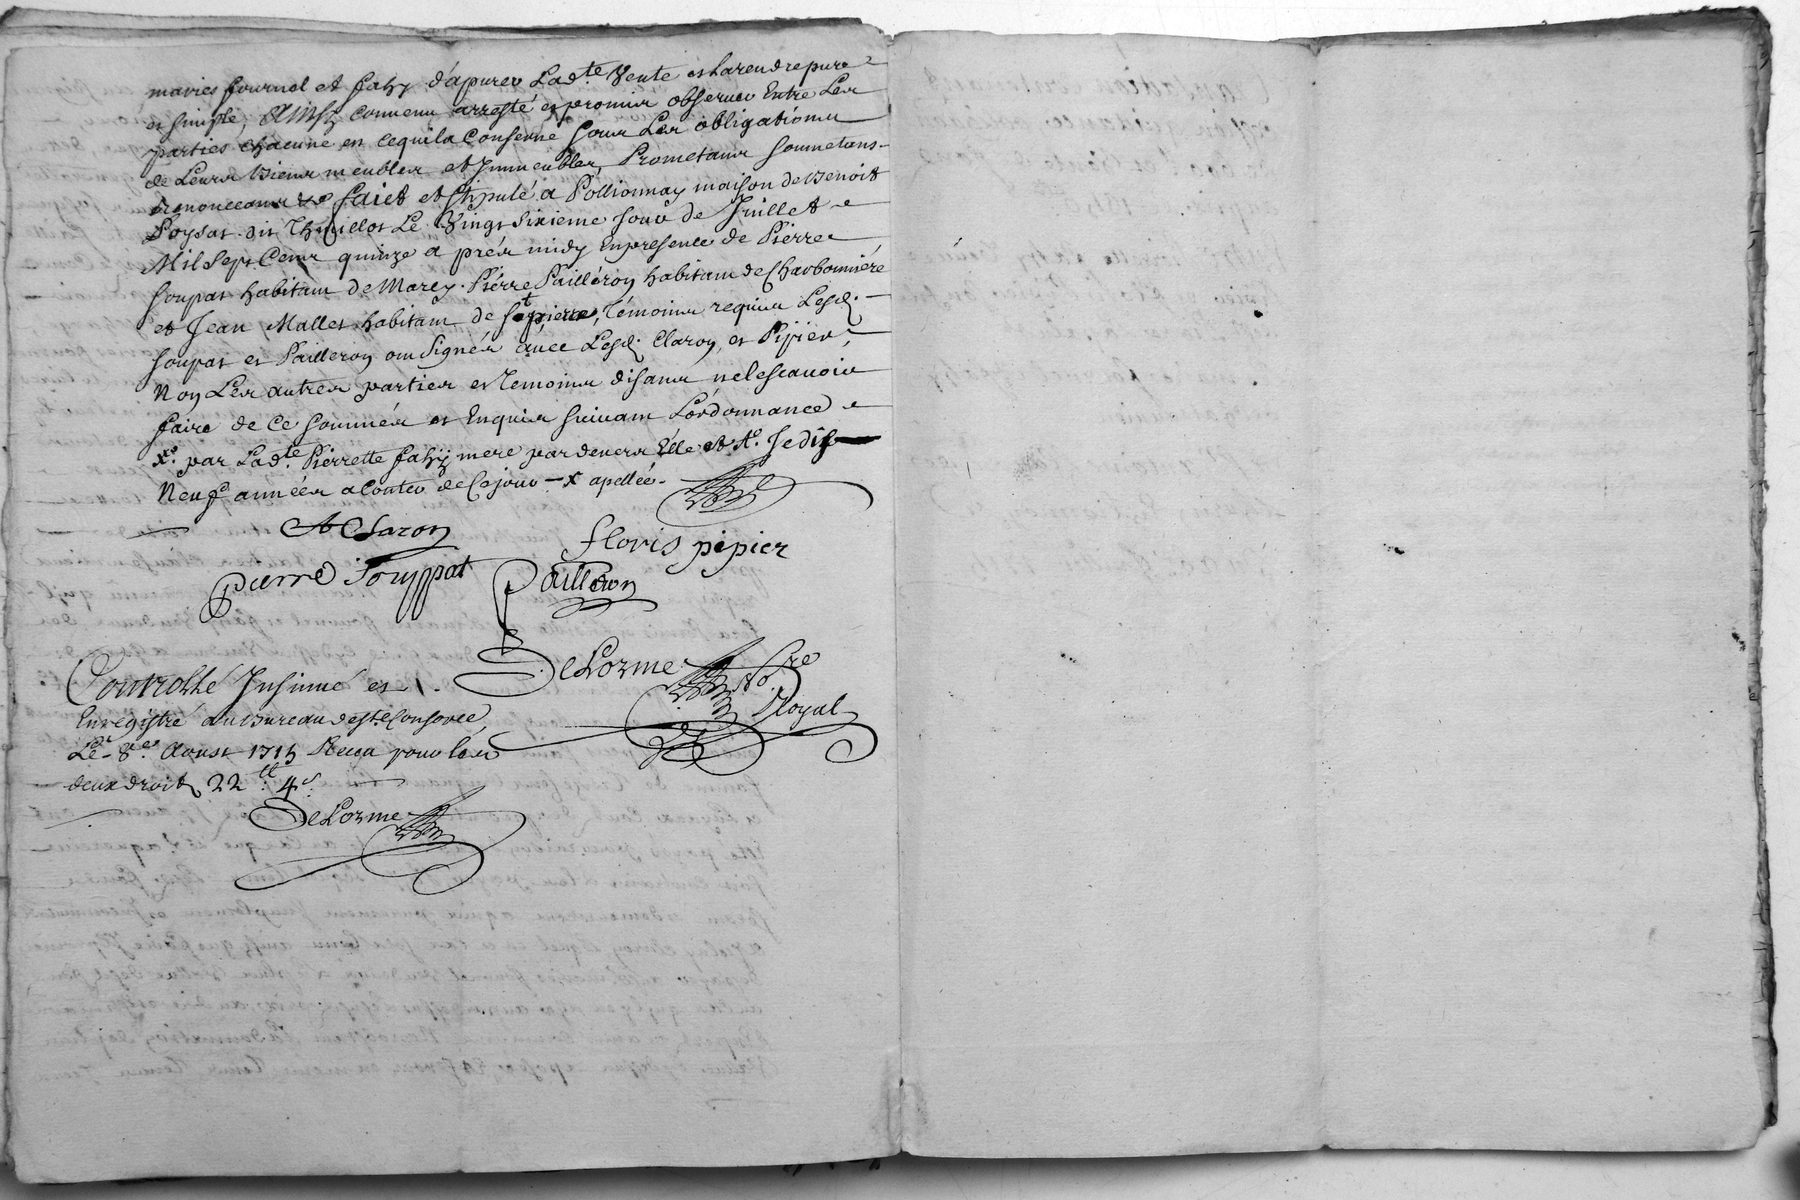 maries fournel et fahy d'apurer Lad.te Vente et La rendre pure
et simple, Ainsy convenu arresté et promis observer Entre Les
parties chacune en ce qui la conserne sous Les obligations
de Leurs biens meubles et Immeubles, Prometans soumetans
Renonceans &c faict et stipulé a Pollionnay maison de Benoit
Poysat dit Thuillot Le Vingt sixieme Jour de Juillet
Mil sept Cens quinze a prés midy En presence de Pierre
soupat habitant de Marcy. Pierre Pailleron habitant de Charbonniére
et Jean Mallet habitant de st pierre, Témoins requis Lesd.
soupat et Pailleron ont Signés avec Lesd. Claron, et Pipier,
Non Les autres parties et temoins disans ne lescavoir
faire de Ce sommés et Enquis suivant Lordonnance
par Lad.te Pierrette fahy mere par devers Elle
Neuf années a Conter de Ce jour - x apellée.
A Claron
floris pipier
pierre souppat
Pailleron
DeLorme No.re Royal
Controllé Insinué et
Enregistré au Bureau de st.e Consorce
Le 8.e Aoust 1715 Receu pour les
deux droits 22 tt 4 s.
DeLorme